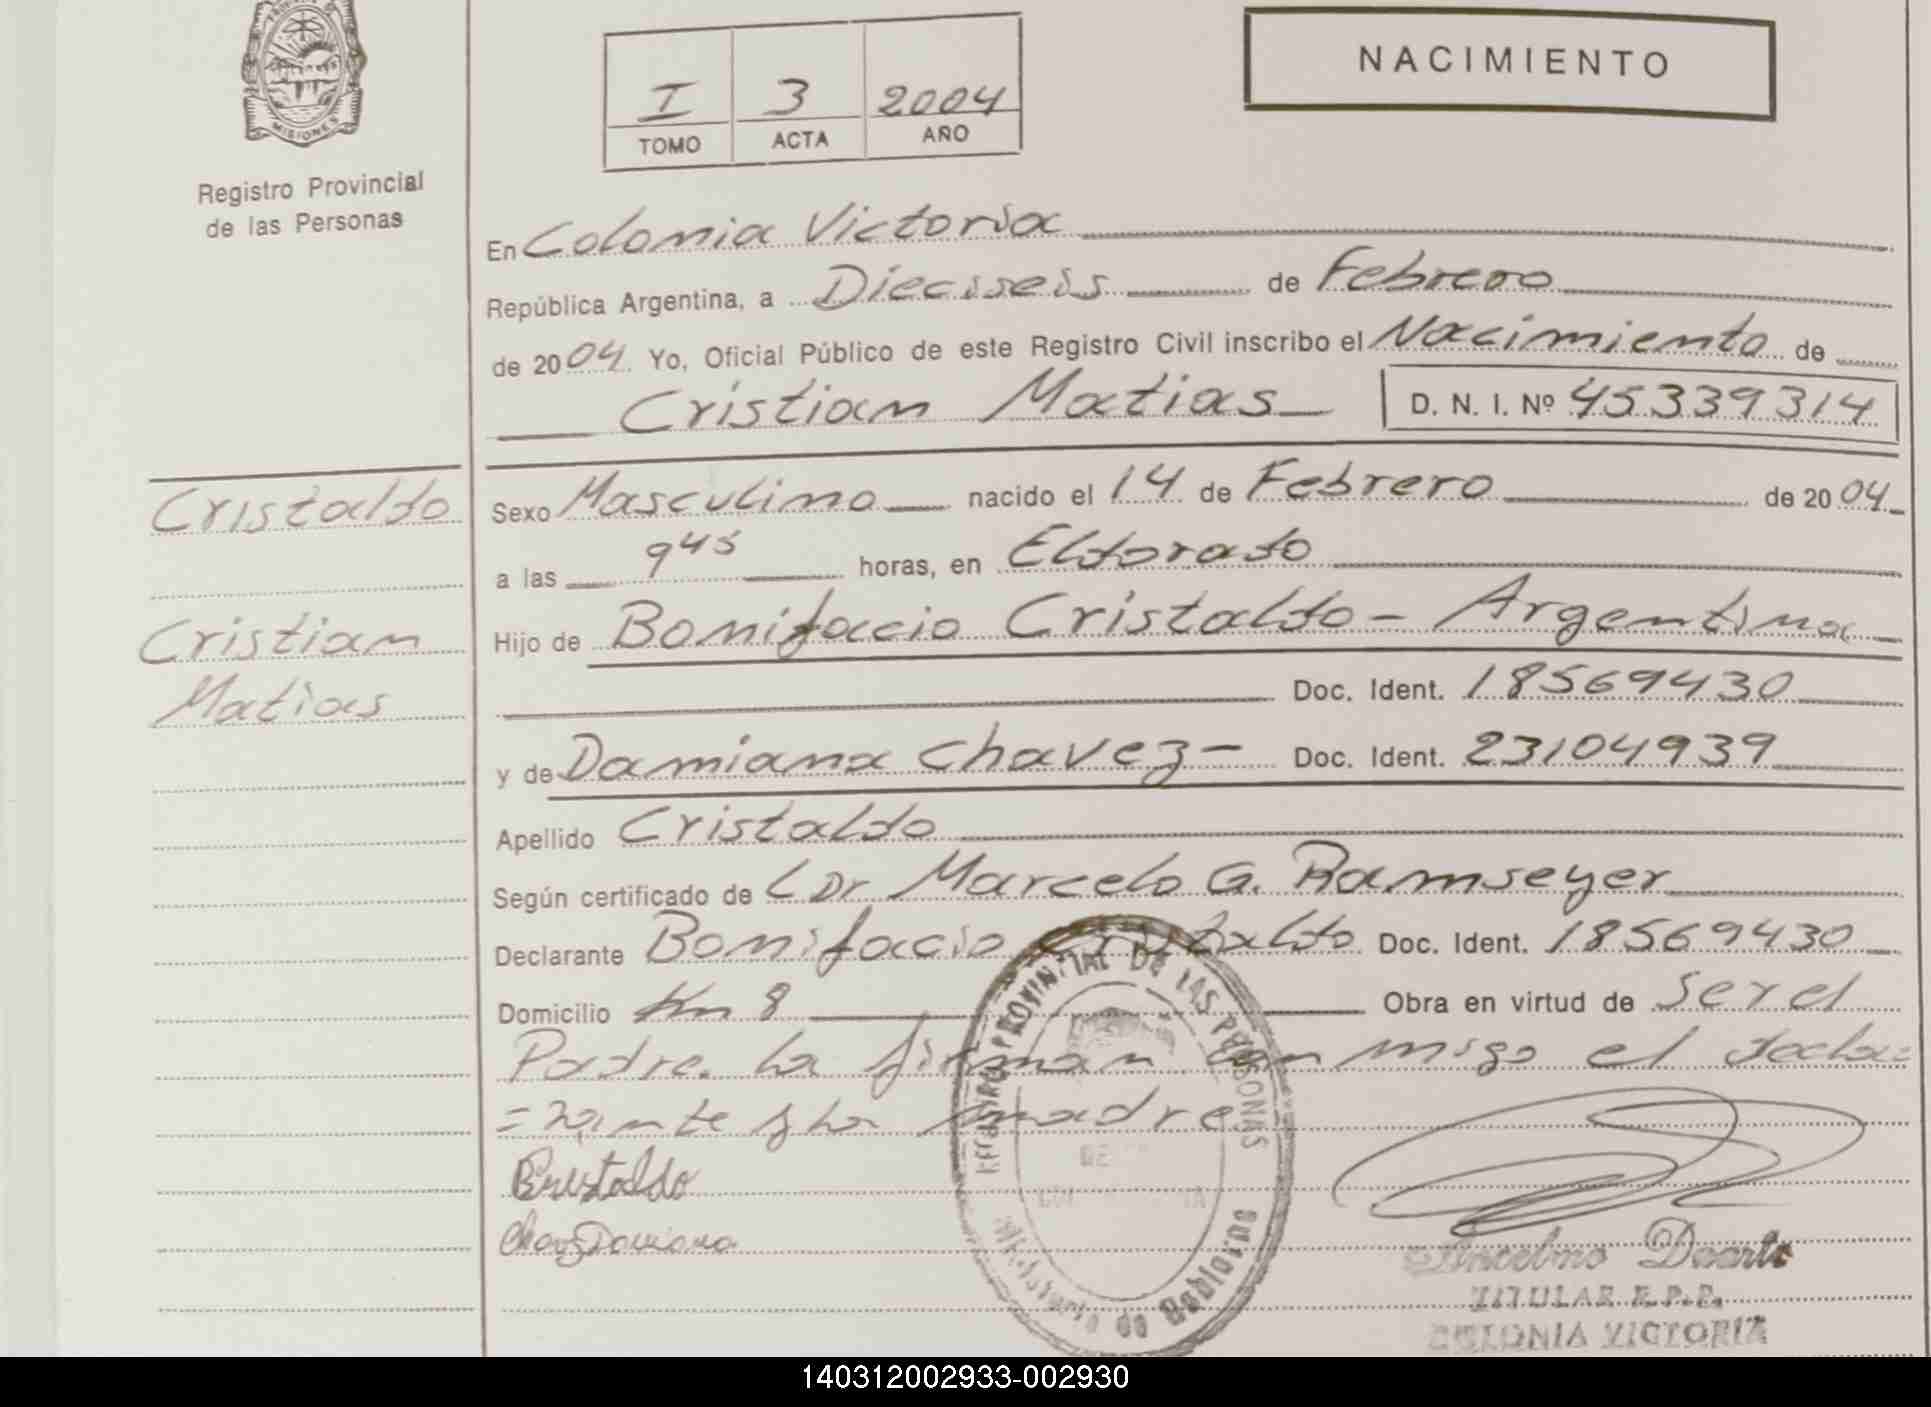 MISIONES
Registro Provincial
de las Personas
I 3 2004
TOMO ACTA AÑO
NACIMIENTO
En Colonia Victoria
República Argentina, a Dieciseis de Febrero
de 2004. Yo, Oficial Público de este Registro Civil inscribo el Nacimiento de
Cristian Matias D. N. I. Nº 45339314
Cristaldo
Cristian
Matias
Sexo Masculino nacido el 14 de Febrero de 2004.
a las 945 horas, en Eldorado
Hijo de Bonifacio Cristaldo - Argentina
Doc. Ident. 18569430
y de Damiana Chavez - Doc. Ident. 23104939
Apellido Cristaldo
Según certificado de Dr Marcelo G. Ramseyer
Declarante Bonifacio Cristaldo Doc. Ident. 18569430
Domicilio Km 8 Obra en virtud de Ser el
Padre. La firman con migo el decla
=rante y la madre
Cristaldo
Damiana
REGISTRO PROVINCIAL DE LAS PERSONAS
Ministerio de Gobierno
Ancelmo Duarte
TITULAR E.P.P.
COLONIA VICTORIA
140312002933-002930